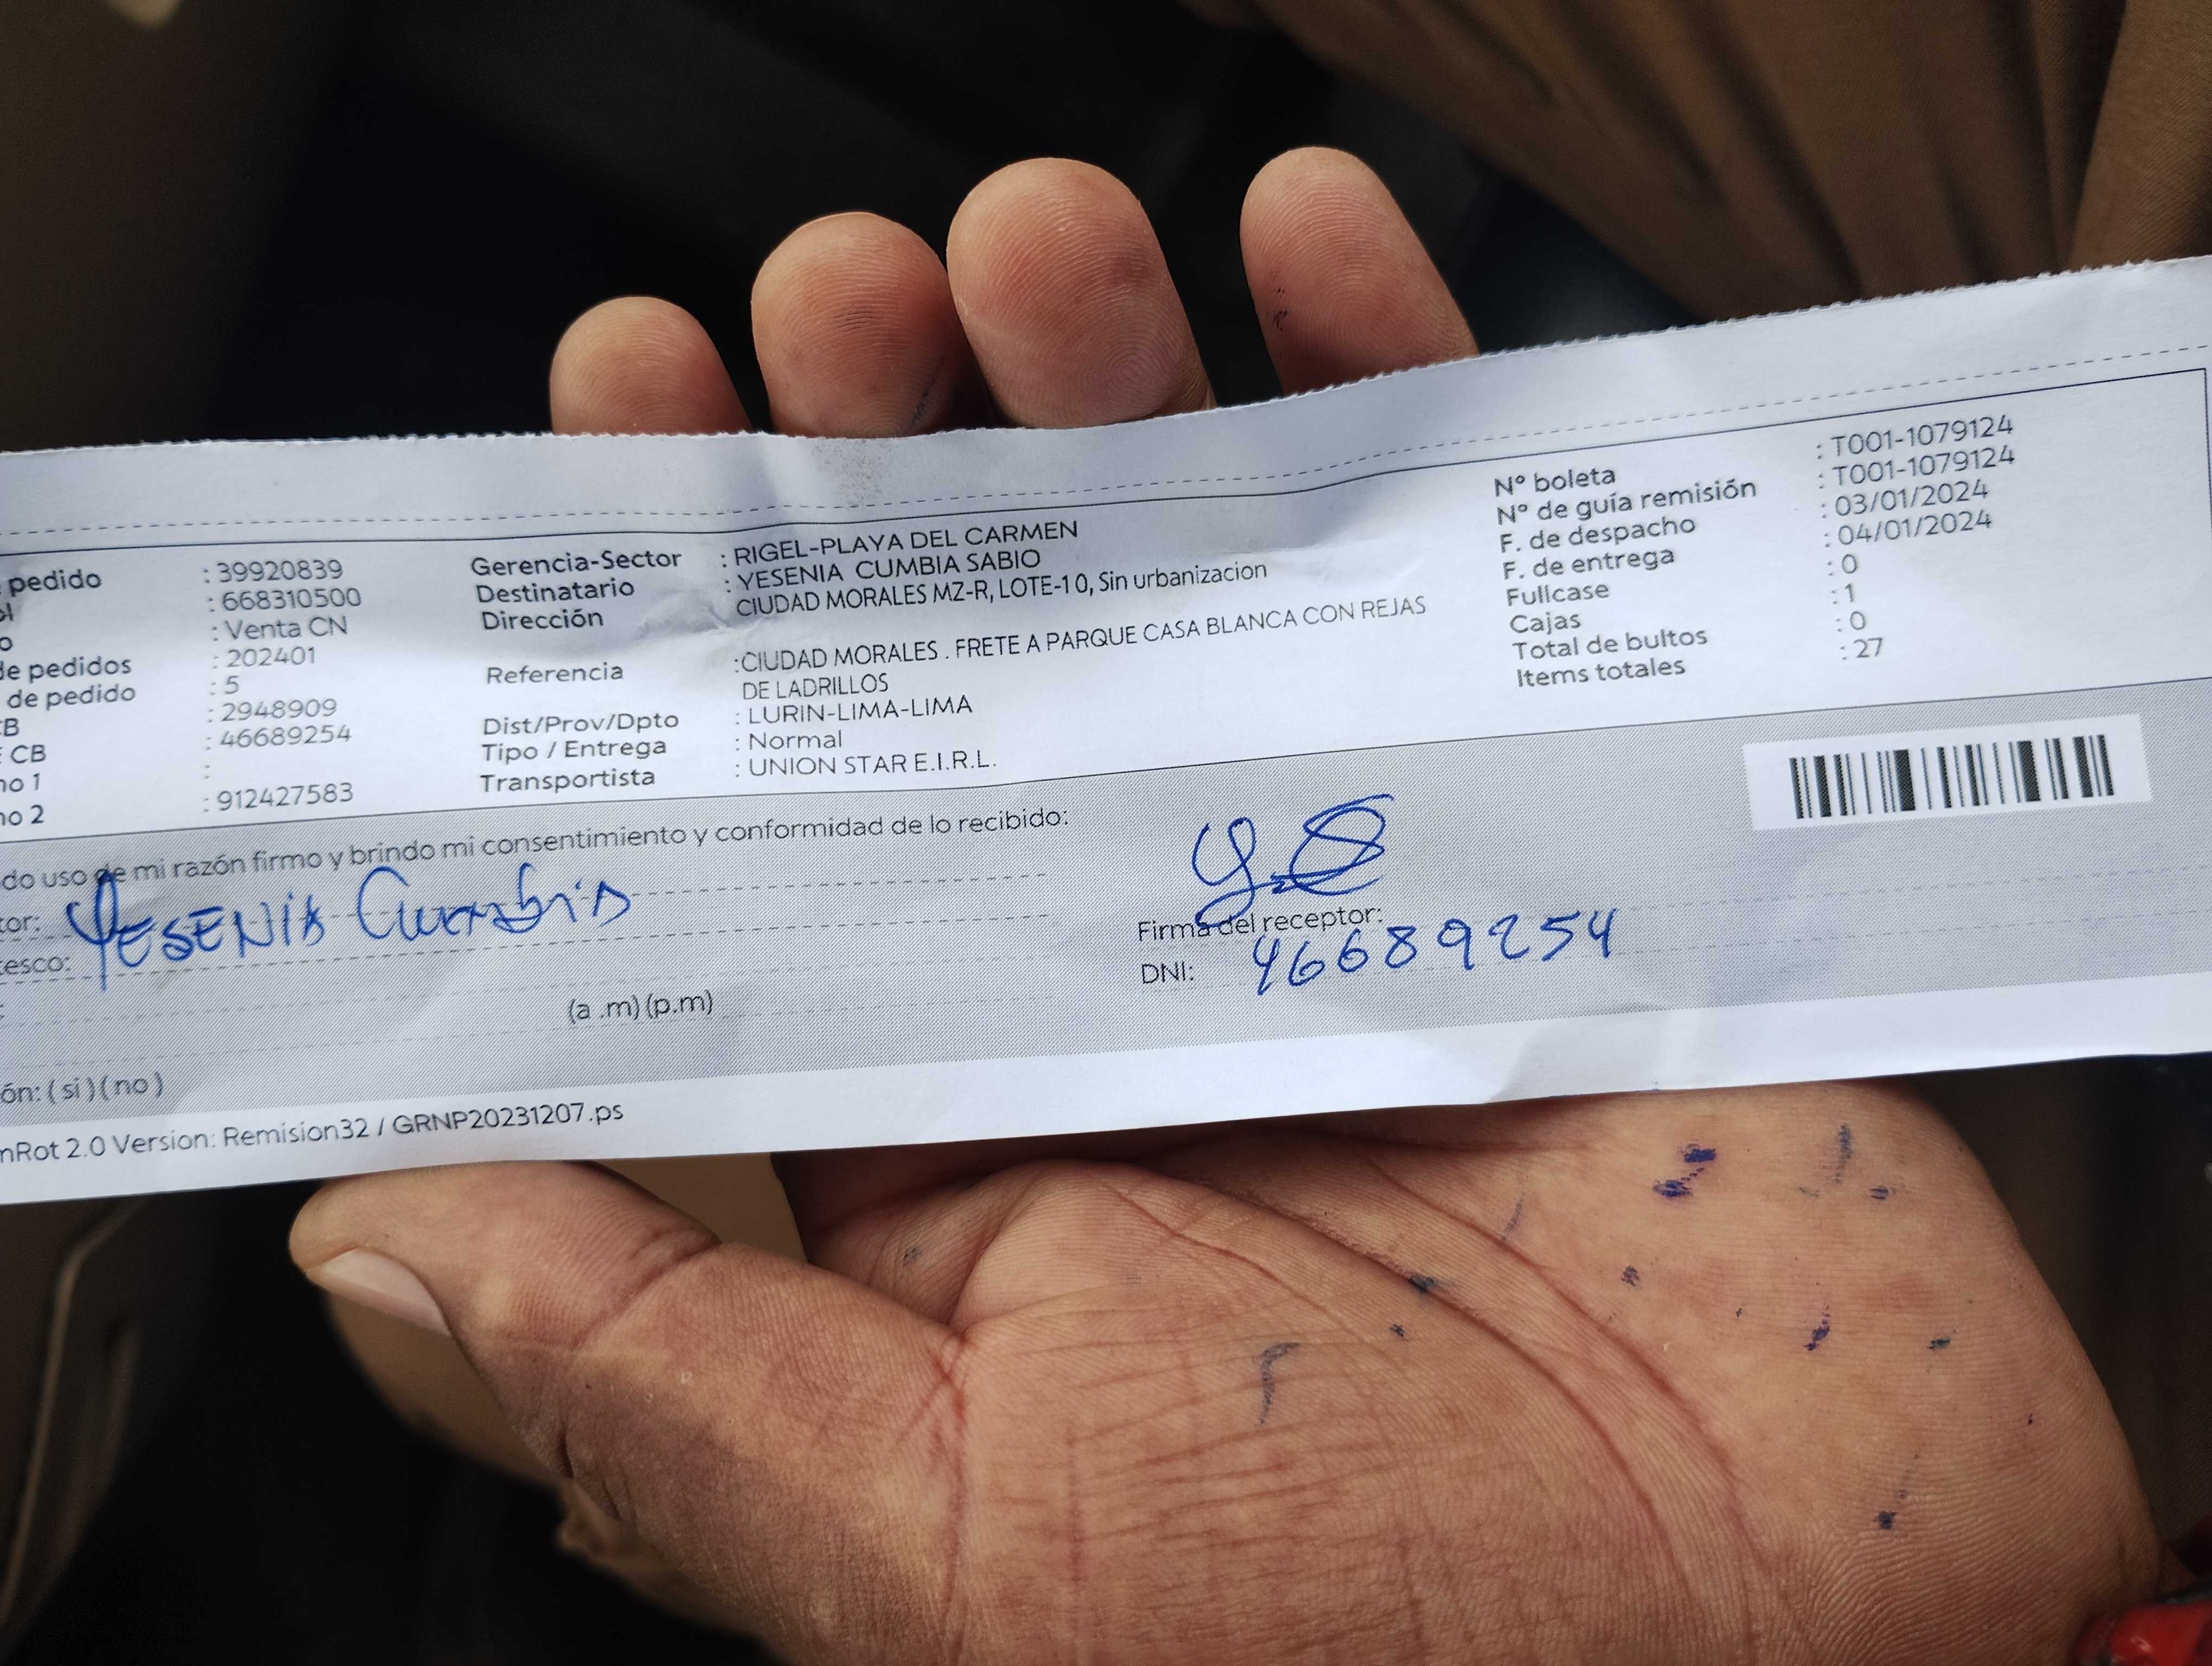 pedido : 39920839 Gerencia-Sector : RIGEL-PLAYA DEL CARMEN Nº boleta : T001-1079124
: 668310500 Destinatario : YESENIA CUMBIA SABIO Nº de guía remisión : T001-1079124
: Venta CN Dirección CIUDAD MORALES MZ-R, LOTE-10, Sin urbanizacion F. de despacho : 03/01/2024
de pedidos : 202401 F. de entrega : 04/01/2024
de pedido : 5 Referencia :CIUDAD MORALES . FRETE A PARQUE CASA BLANCA CON REJAS Fullcase : 0
DE LADRILLOS Cajas : 1
CB : 2948909 Dist/Prov/Dpto : LURIN-LIMA-LIMA Total de bultos : 0
CB : 46689254 Tipo / Entrega : Normal Items totales : 27
no 1 : Transportista : UNION STAR E.I.R.L.
no 2 : 912427583
do uso de mi razón firmo y brindo mi consentimiento y conformidad de lo recibido:
tor: YESENIA Cumbia
esco: Firma del receptor:
DNI: 46689254
(a .m) (p.m)
ón: ( si ) ( no )
nRot 2.0 Version: Remision32 / GRNP20231207.ps